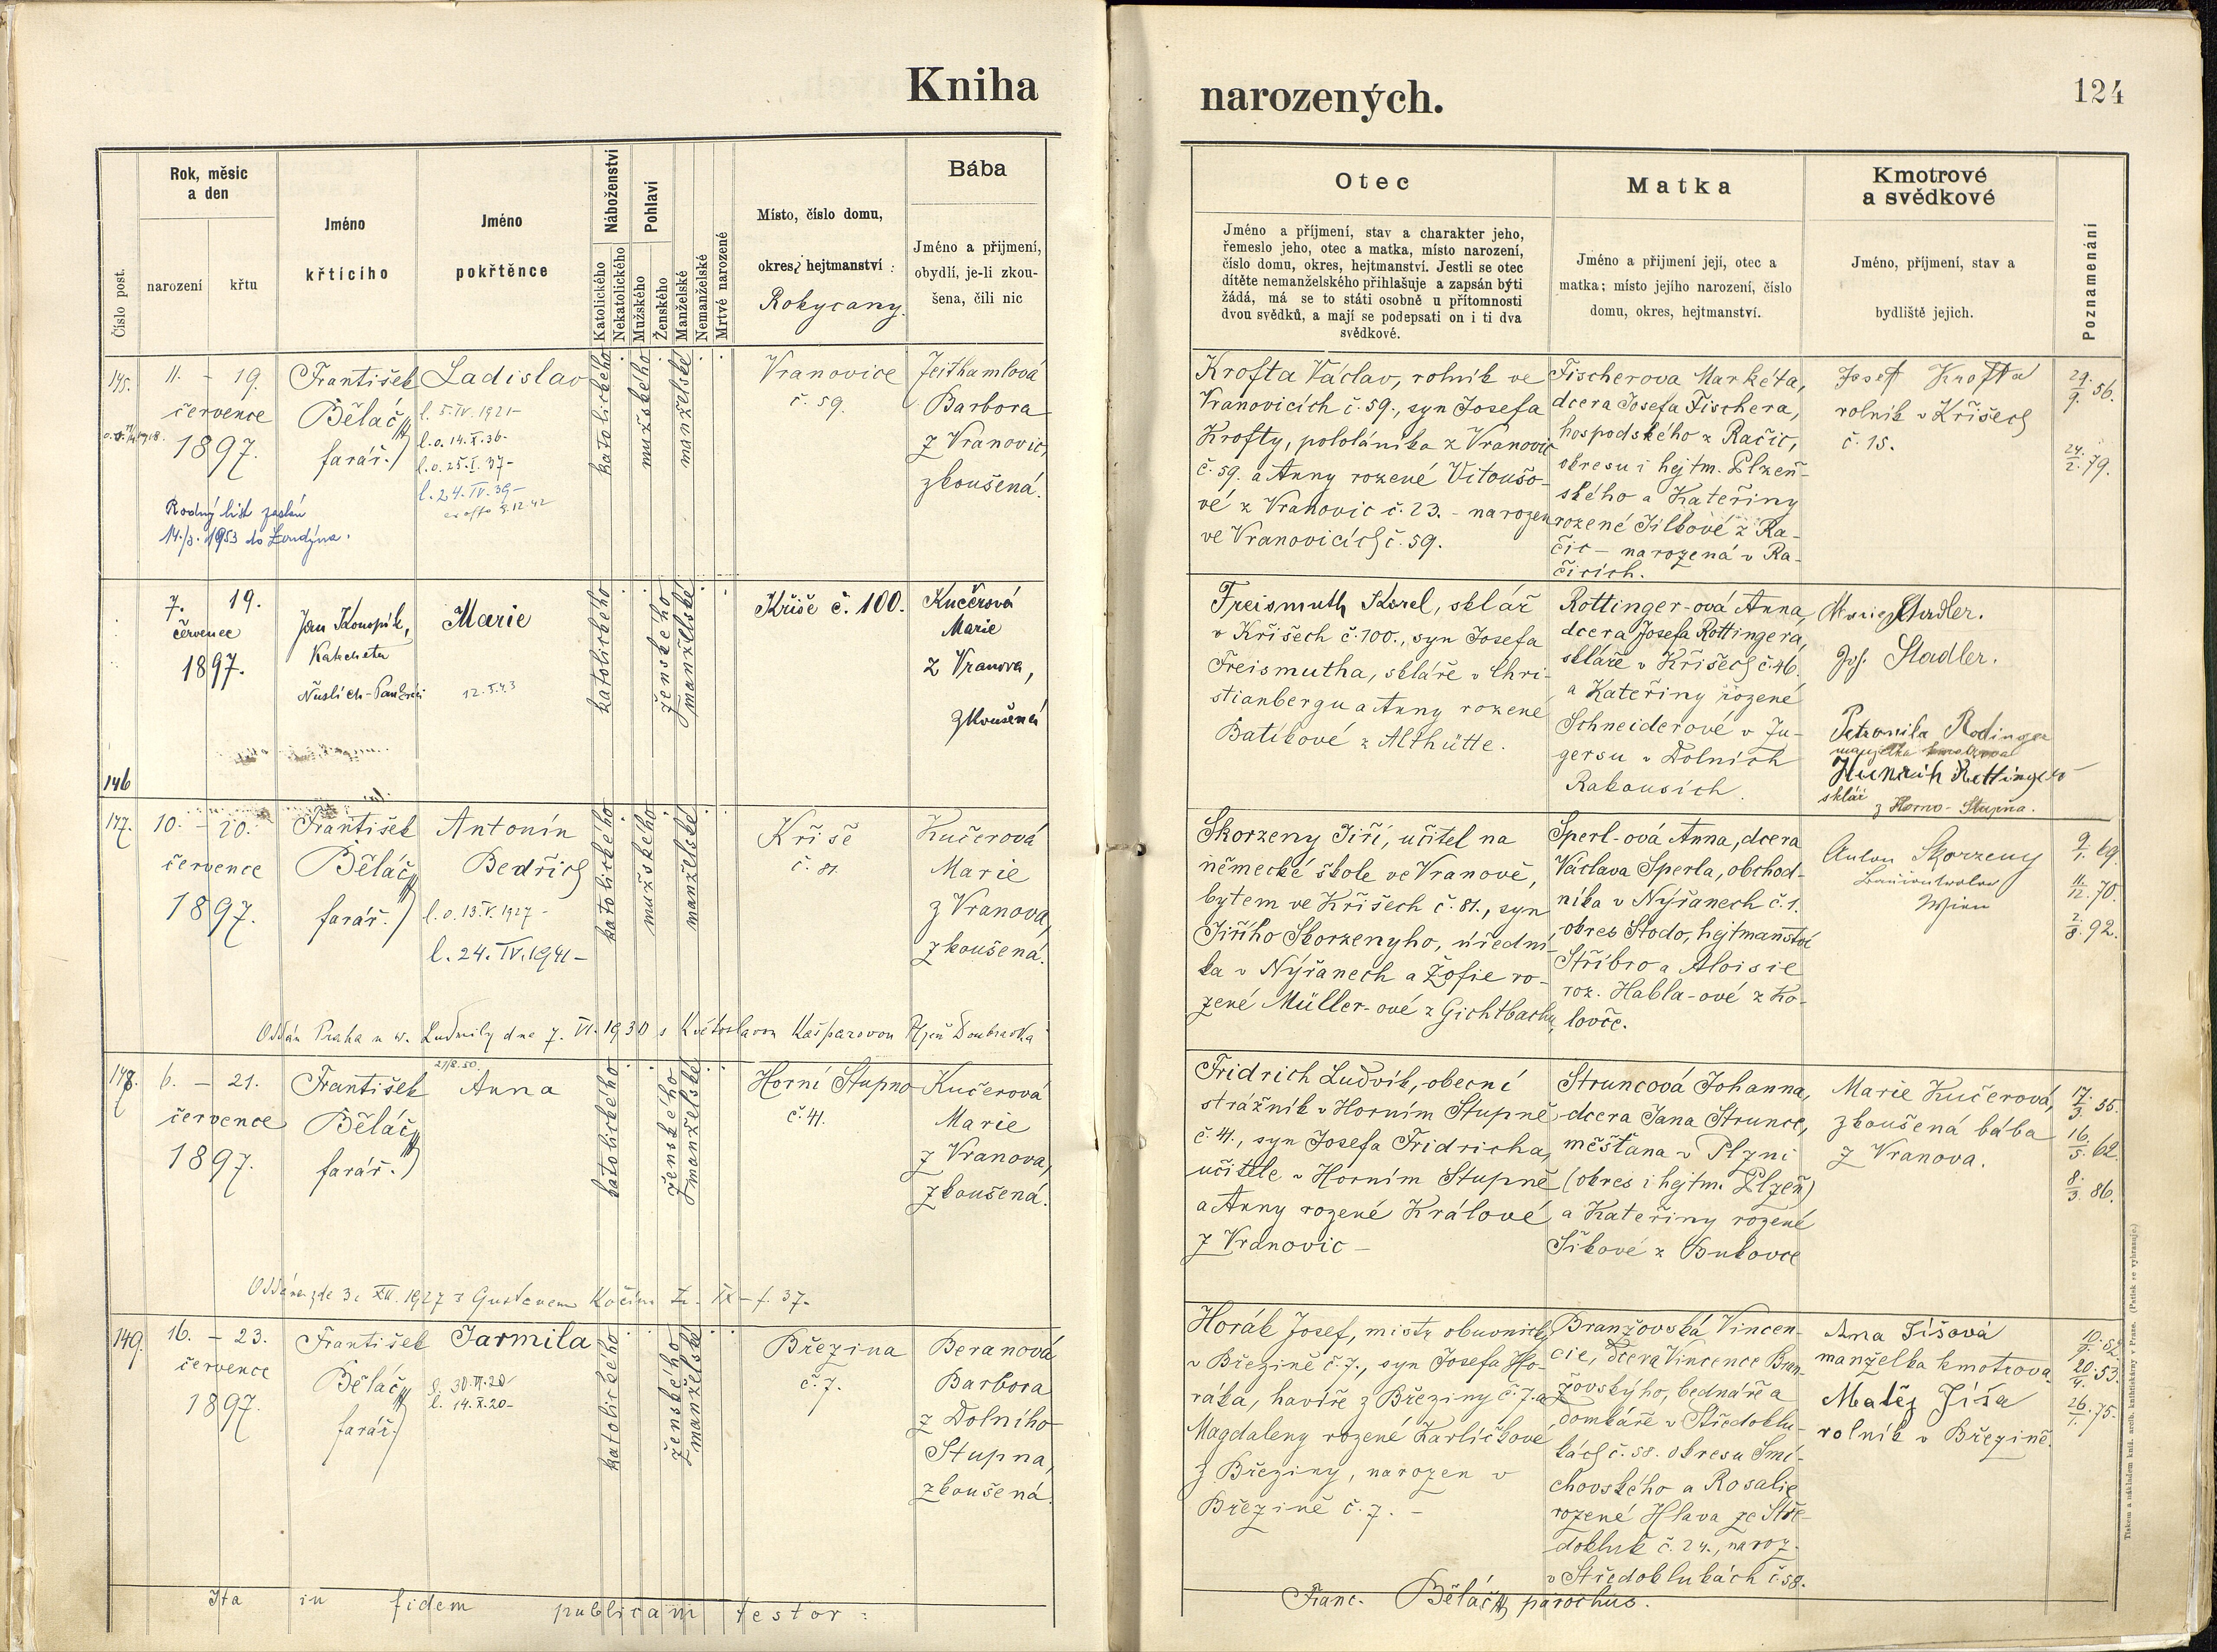 Kniha
Rok, měsíc
a den
narození
křtu
Číslo post.
Jméno
křtícího
Jméno
pokřtěnce
Náboženství
Katolického
Nekatolického
Pohlaví
Mužského
Ženského
Manželské
Nemanželské
Mrtvé narozené
Místo, číslo domu,
okres, hejtmanství
Rokycany.
Bába
Jméno a přijmení,
obydlí, je-li zkou-
šena, čili nic
145.
11. – 19.
července
1897.
František
Běláč
farář.
Ladislav
l. 5. IV. 1921 –
l. o. 14. X. 36 –
l. o. 25. I. 37 –
l. 24. IV. 39 –
Rodný list zaslán
14./3. 1953 do Londýna.
katolického
mužského
manželské
Vranovice
č. 59.
Jeithamlová
Barbora
z Vranovic,
zkoušená.
146
7. 19.
červenec
1897.
Jan Konopík,
Katecheta
Marie
12. 5. 43
katolického
ženského
manželské
Kříše č. 100.
Kučerová
Marie
z Vranova,
zkoušená
147.
10. – 20.
července
1897.
František
Běláč
farář.
Antonín
Bedřich
l. o. 13. V. 1927 –
l. 24. IV. 1941 –
katolického
mužského
manželské
Kříše
č. 81.
Kučerová
Marie
z Vranova,
zkoušená.
Oddán Praha u sv. Ludmily dne 7. VI. 1930 s Květoslavou Kašparovou Plzeň Doubravka
148.
6. – 21.
července
1897.
František
Běláč
farář.
21/8. 50.
Anna
katolického
ženského
manželské
Horní Stupno
č. 41.
Kučerová
Marie
z Vranova,
zkoušená.
Oddána zde 3. XII. 1927 s Gustavem Kočím IX – f. 37 –
149.
16. – 23.
července
1897.
František
Běláč
farář.
Jarmila
l. 14. X. 20 –
katolického
ženského
manželské
Březina
č. 7.
Beranová
Barbora
z Dolního
Stupna,
zkoušená
Ita in fidem publicam testor:
narozených.
124
Otec
Jméno a příjmení, stav a charakter jeho,
řemeslo jeho, otec a matka, místo narození,
číslo domu, okres, hejtmanství. Jestli se otec
dítěte nemanželského přihlašuje a zapsán býti
žádá, má se to státi osobně u přítomnosti
dvou svědků, a mají se podepsati on i ti dva
svědkové.
Matka
Jméno a přijmení její, otec a
matka; místo jejího narození, číslo
domu, okres, hejtmanství.
Kmotrové
a svědkové
Jméno, příjmení, stav a
bydliště jejich.
Poznamenání
Krofta Václav, rolník ve
Vranovicích č. 59., syn Josefa
Krofty, pololáníka z Vranovic
č. 59. a Anny rozené Vitoušo-
vé z Vranovic č. 23. – narozen
ve Vranovicích č. 59.
Fischerova Markéta,
dcera Josefa Fischera,
hospodského z Račic,
okresu i hejtm. Plzeň-
ského a Kateřiny
rozené Jílkové z Ra-
čic – narozená v Ra-
čicích.
Josef Krofta
rolník v Kříšech
č. 15.
29./9. 56.
24./2. 79.
Freismuth Karel, sklář
v Kříšech č. 100., syn Josefa
Freismutha, skláře v Chri-
stianbergu a Anny rozené
Batíkové z Althütte.
Rottinger-ová Anna,
dcera Josefa Rottingera,
skláře v Kříšech č. 46.
a Kateřiny rozené
Schneiderové v Ju-
gersu v Dolních
Rakousích.
Marie Stadler.
Jos. Stadler.
Petronila Rodinger
Heinrich Rottinger
sklář
z Horno-Stupna.
Skorzeny Jiří, učitel na
německé škole ve Vranově,
bytem ve Kříšech č. 81., syn
Jiřího Skorzenyho, úřední-
ka v Nýřanech a Žofie ro-
zené Müller-ové z Gichtbachu
Sperl-ová Anna, dcera
Václava Sperla, obchod-
níka v Nýřanech č. 1.
okres Stodo, hejtmanství
Stříbro a Aloisie
roz. Habla-ové z Ko-
lovče.
Anton Skorzeny
Wien
9/1. 69.
11/12. 70.
2/8. 92.
Fridrich Ludvík, obecní
strážník v Horním Stupně
č. 41., syn Josefa Fridricha,
učitele v Horním Stupně
a Anny rozené Králové
z Vranovic –
Struncová Johanna,
dcera Jana Strunce,
měšťana v Plzni
(okres i hejtm. Plzeň)
a Kateřiny rozené
Šíkové z Bukovce
Marie Kučerová,
zkoušená bába
z Vranova.
17./3. 35.
16./5. 62.
8./3. 86.
Horák Josef, mistr obuvnický
v Březině č. 7., syn Josefa Ho-
ráka, havíře z Březiny č. 7. a
Magdaleny rozené Karlíčkové
z Březiny, narozen v
Březině č. 7. –
Branžovská Vincen-
cie, dcera Vincence Bran-
žovskýho, bednáře a
domkáře v Středoklu-
kách č. 58. okresu Smí-
chovského a Rosalie
rozené Hlava ze Stře-
dokluk č. 24., naroz.
v Středoklukách č. 58.
Ana Jíšová
manželka kmotrova
Matěj Jíša
rolník v Březině.
20./4. 53.
26./1. 75.
Franc. Běláč, parochus.